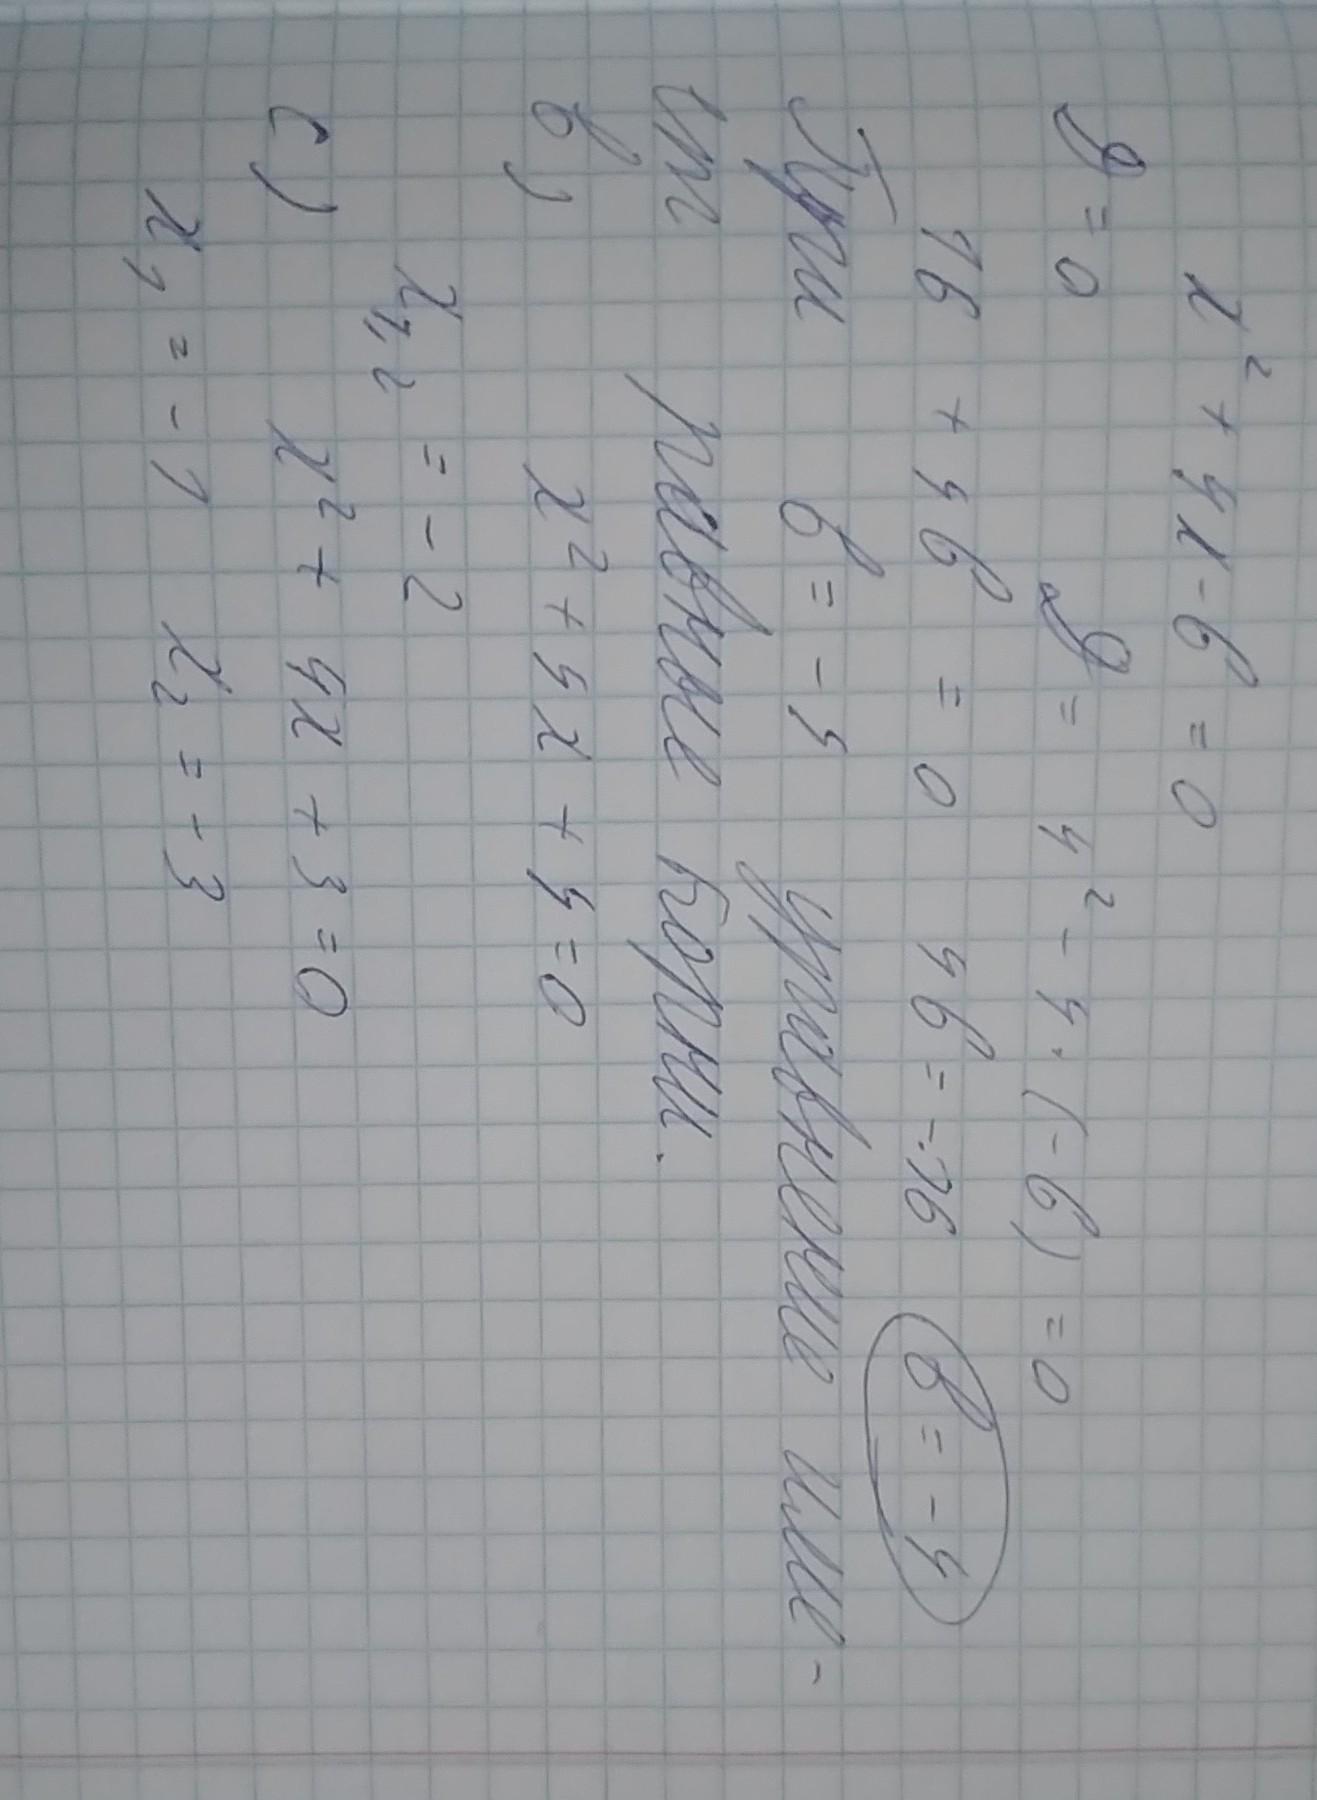 x² + 4x - b = 0
D = 0 D = 4² - 4 · (-b) = 0
16 + 4b = 0 4b = -16 b = -4
При b = -4 уравнение име-
ет равные корни.
b) x² + 4x + 4 = 0
x₁,₂ = -2
c) x² + 4x + 3 = 0
x₁ = -1 x₂ = -3